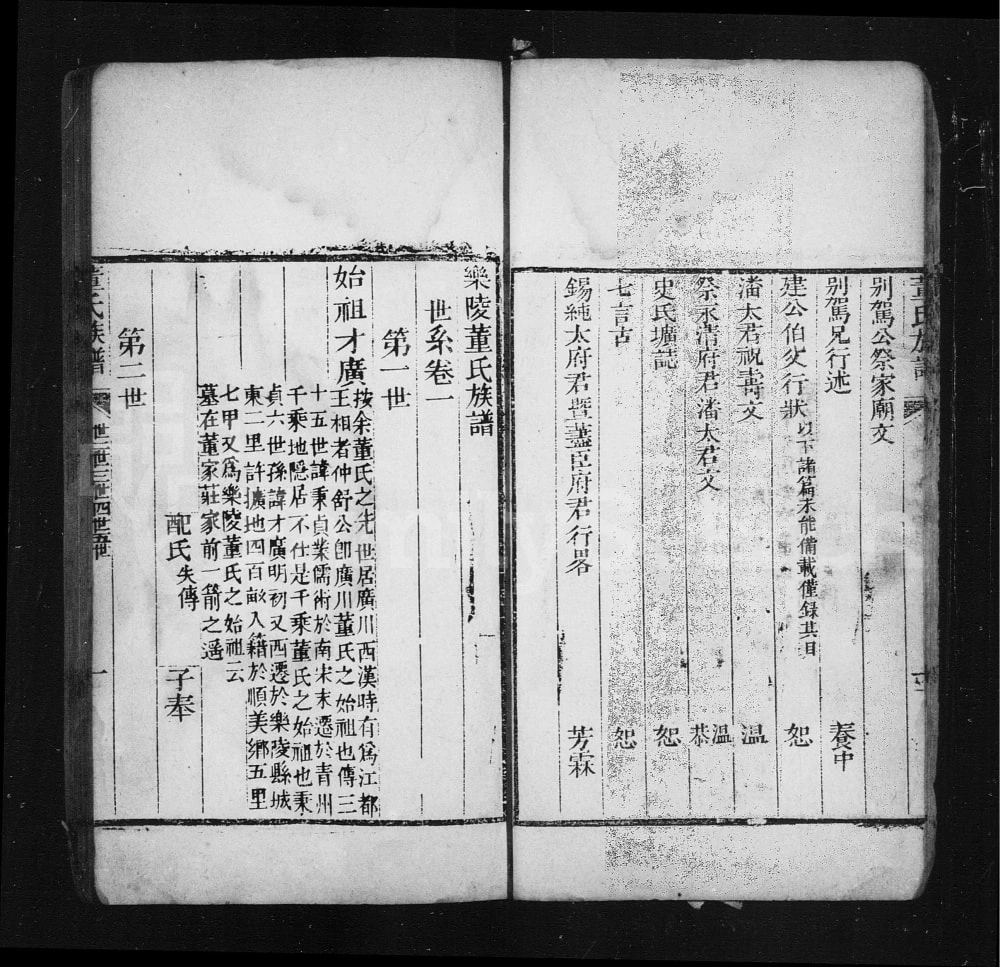 董氏族譜
別駕公祭家廟文
別駕兄行述 養中
建公伯父行狀 以下諸篇未能備載僅錄其目 恕
潘太君祝壽文 温
祭永清府君潘太君文 温恭
史氏壙誌 恕
七言古 恕
錫純太府君暨藎臣府君行畧 芳霖
樂陵董氏族譜
世系卷一
第一世
始祖才廣 按余董氏之先世居廣川西漢時有爲江都
王相者仲舒公卽廣川董氏之始祖也傳三
十五世諱秉貞業儒術於南宋末遷於青州
千乘地隱居不仕是千乘董氏之始祖也秉
貞六世孫諱才廣明初又西遷於樂陵縣城
東二里許擴地四百畝入籍於順美鄉五里
七甲又爲樂陵董氏之始祖云
墓在董家莊家前一箭之遥
配氏失傳 子奉
第二世
董氏族譜 世系 一世二世三世四世五世 一